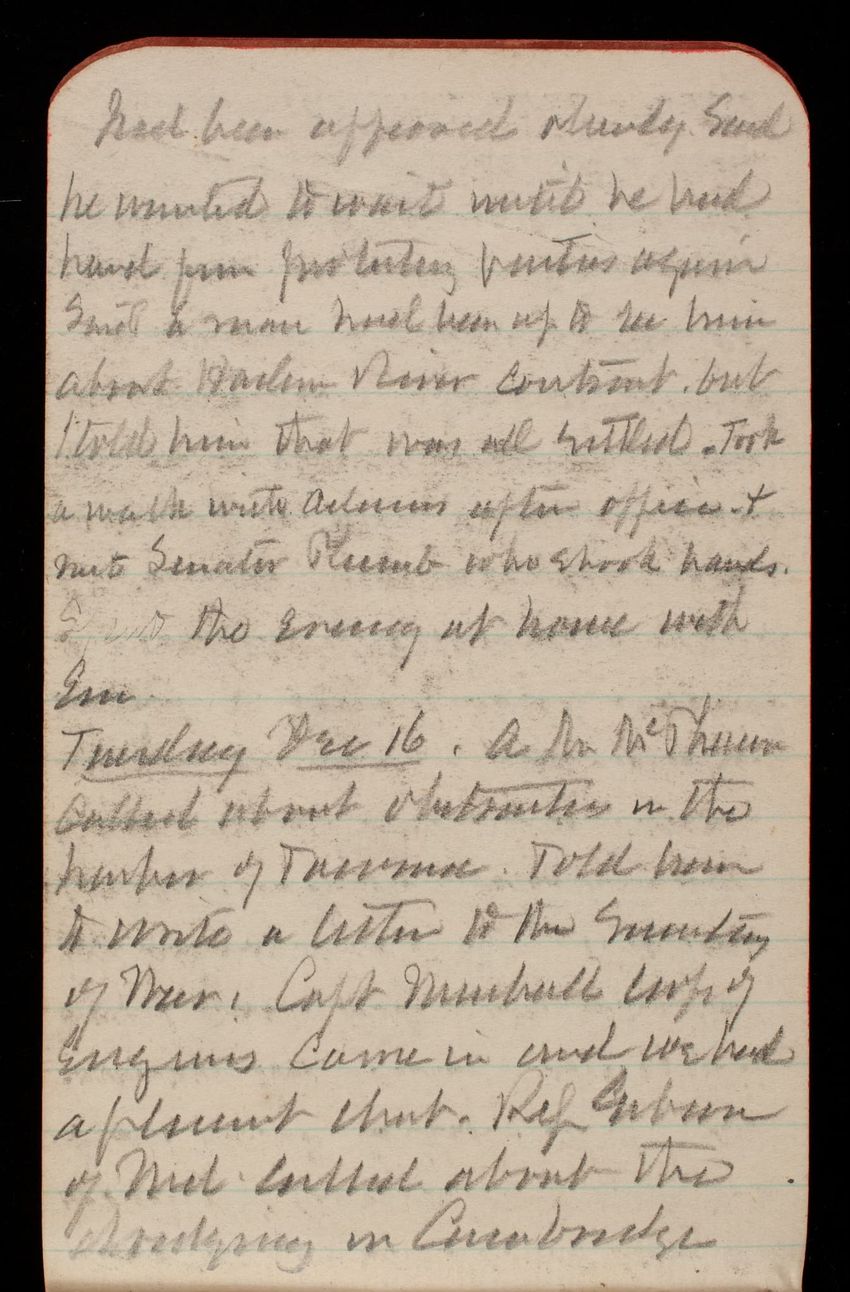 had been approved already. Said
he wanted to wait until he had
heard from protesting parties again
Said a man had been up to see him
about Harlem River contract. but
I told him that was all settled. Took
a walk with Adams after office. +
met Senator Plumb who shook hands.
Spent the evening at home with
Em.
Tuesday Dec 16. A Mr
called about obstruction in the
harbor of Tacoma. Told him
to write a letter to the Secretary
of War. Capt Marshall Corps of
Engineers came in and we had
a pleasant chat. Rep Gibson
of Md called about the
dredging in Cambridge